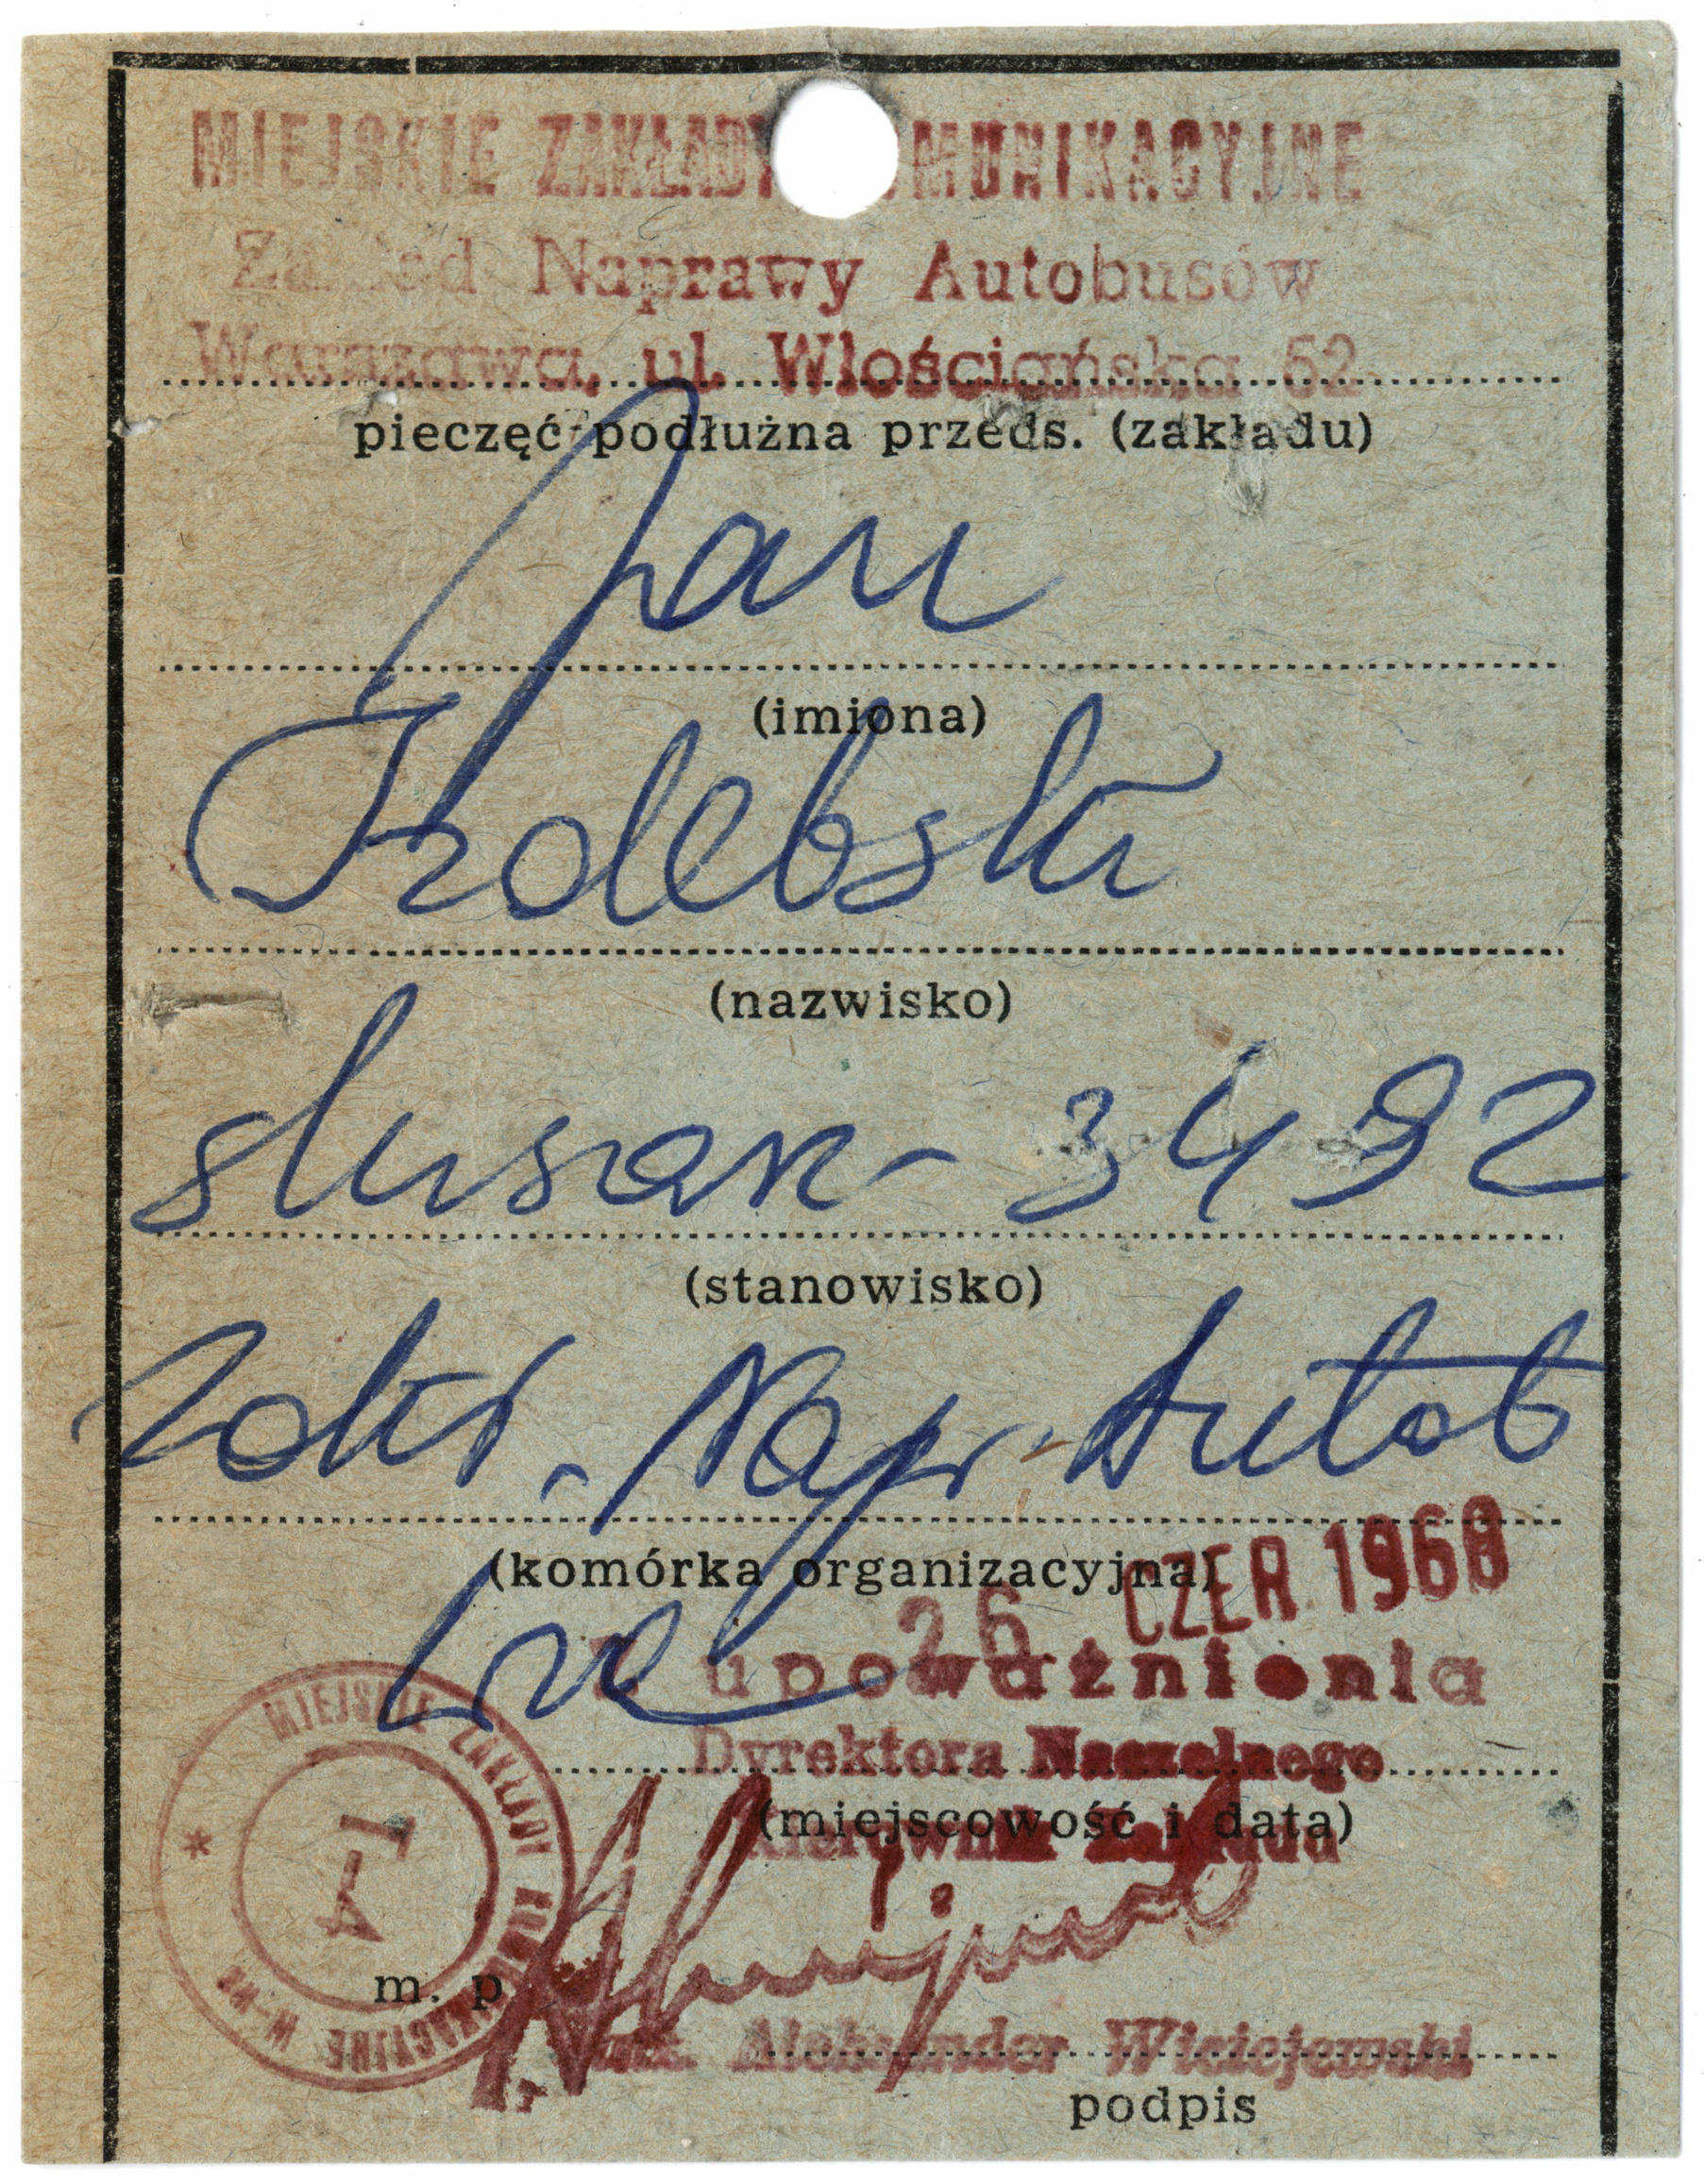 MIEJSKIE ZAKŁADY KOMUNIKACYJNE
Zakład Naprawy Autobusów
Warszawa, ul. Włościańska 52
pieczęć podłużna przeds. (zakładu)
Jan
(imiona)
Izdebski
(nazwisko)
ślusarz - 3492
(stanowisko)
Zakł. Napr. Autob
(komórka organizacyjna)
26 CZER 1968
z upoważnienia
Dyrektora Naczelnego
(miejscowość i data)
Kierownik Zakładu
MIEJSKIE ZAKŁADY KOMUNIKACYJNE
m. p.
Aleksander
podpis